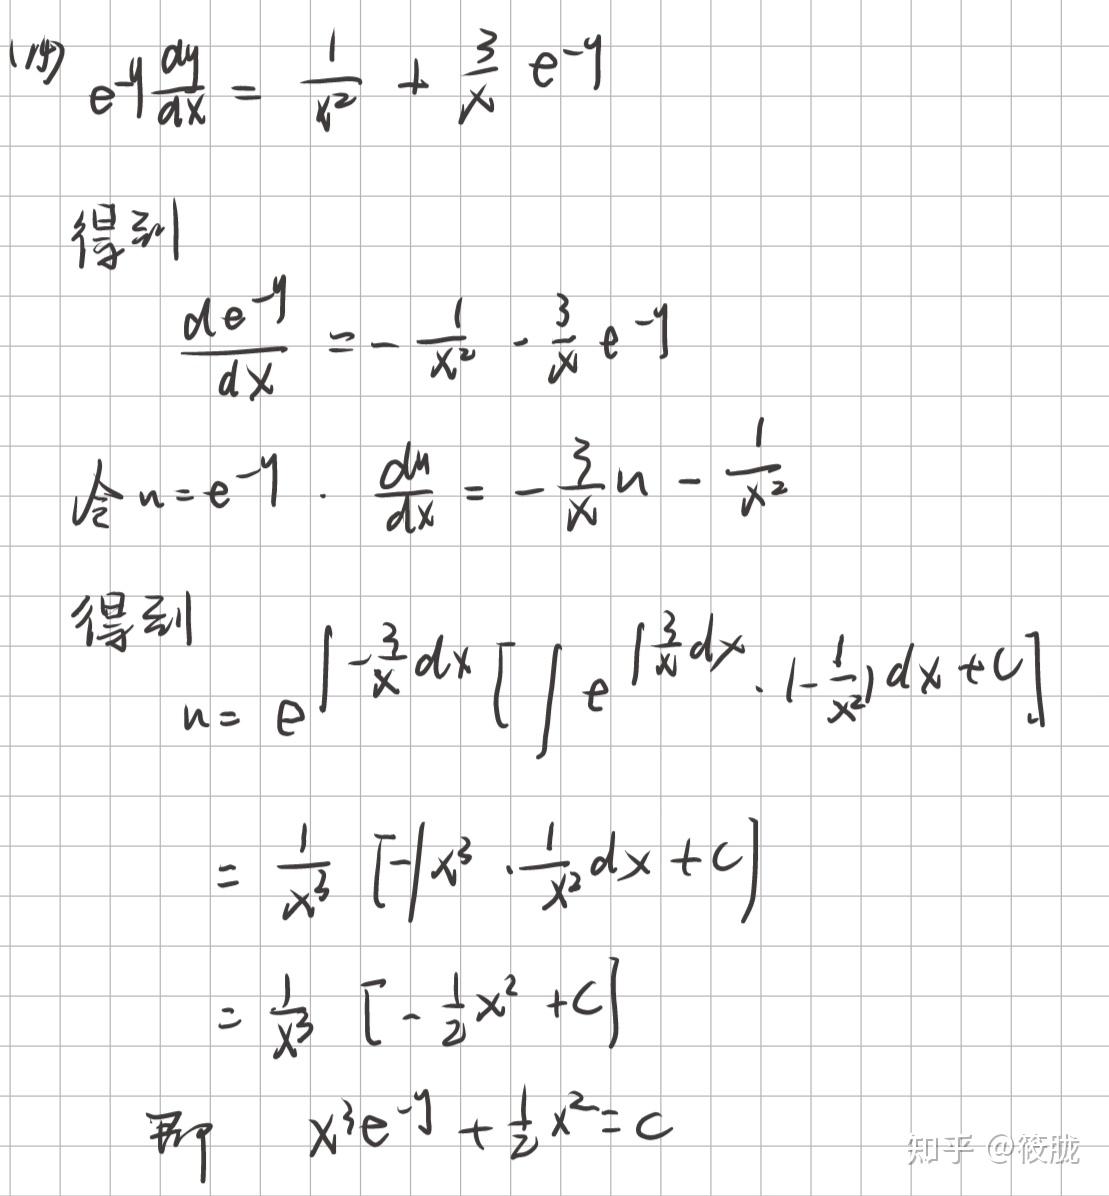 (14) e^{-y} \frac{dy}{dx} = \frac{1}{x^2} + \frac{3}{x} e^{-y}
得到
\frac{de^{-y}}{dx} = -\frac{1}{x^2} - \frac{3}{x} e^{-y}
令 u = e^{-y} . \frac{du}{dx} = -\frac{3}{x} u - \frac{1}{x^2}
得到
u = e^{\int -\frac{3}{x} dx} [ \int e^{\int \frac{3}{x} dx} \cdot (-\frac{1}{x^2}) dx + C ]
= \frac{1}{x^3} [ -\int x^3 \cdot \frac{1}{x^2} dx + C ]
= \frac{1}{x^3} [ -\frac{1}{2} x^2 + C ]
即 x^3 e^{-y} + \frac{1}{2} x^2 = C
知乎 @筱胧